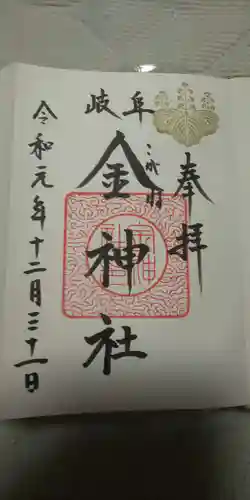 奉拝
岐阜
金神社
令和元年十二月三十一日